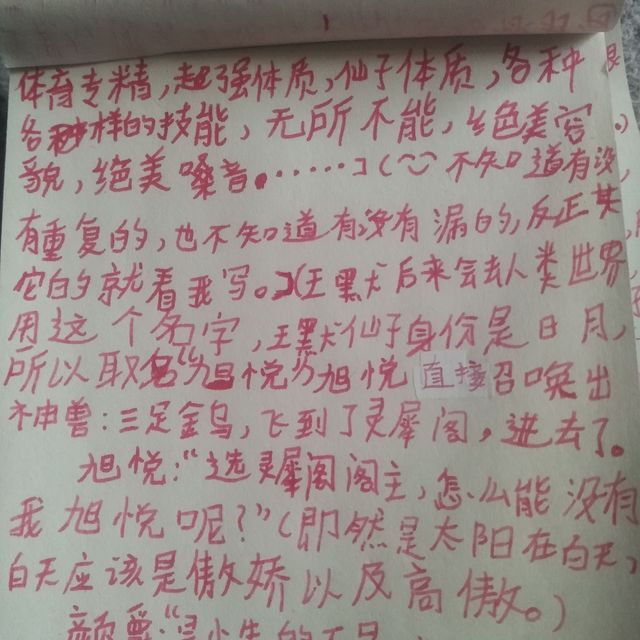 体育专精，超强体质，仙子体质，各种
各种样的技能，无所不能，绝美容
貌，绝美嗓音。……】（不知道有没
有重复的，也不知道有没有漏的，反正其
它的就看我写。】（王黑犬后来会去人类世界
用这个名字，王黑犬仙子身份是日月，
所以取名“旭悦”）旭悦直接召唤出
神兽：三足金乌，飞到了灵犀阁，进去了。
旭悦：“选灵犀阁阁主，怎么能没有
我旭悦呢？”（即然是太阳在白天，
白天应该是傲娇以及高傲。）
颜爵：“